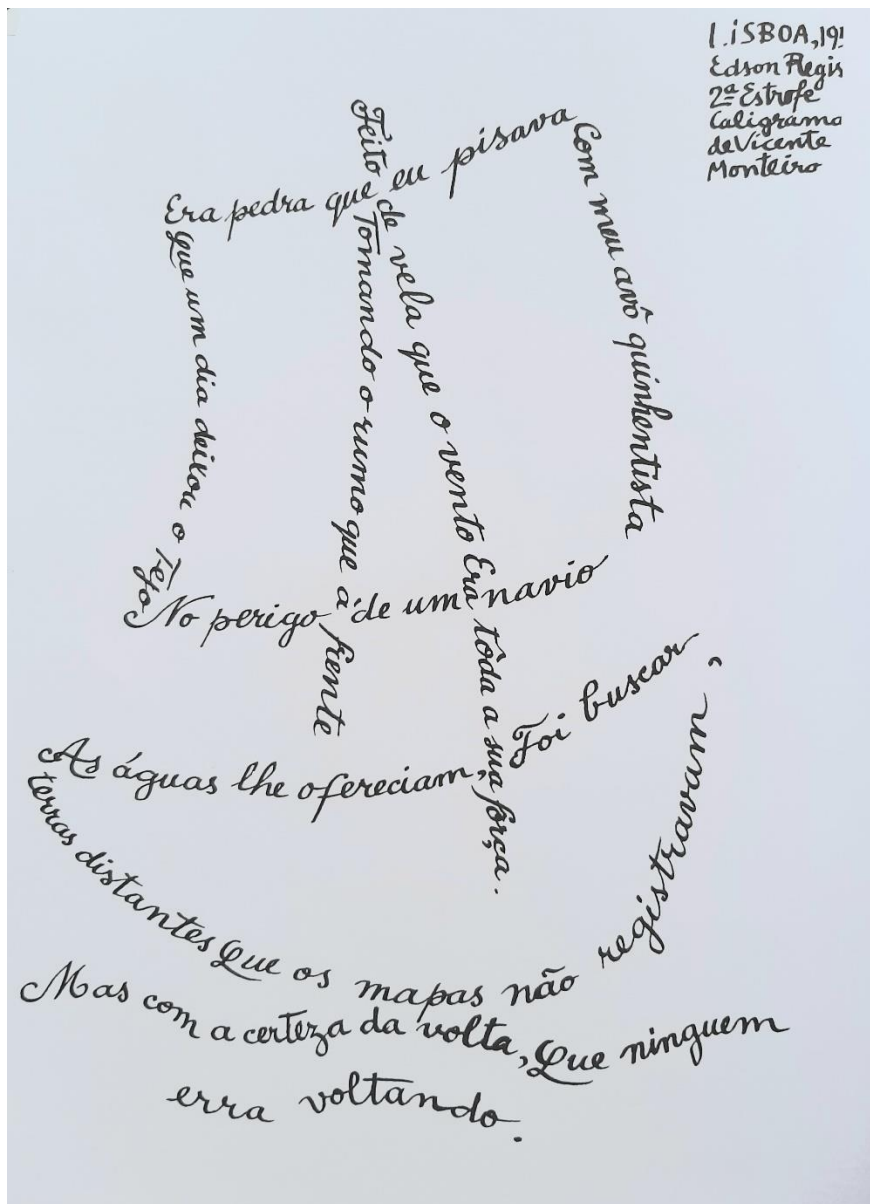 LISBOA, 19!
Edson Regis
2ª Estrofe
Caligrama
de Vicente
Monteiro
Era pedra que eu pisava
Com meu avô quinhentista
Que um dia deixou o Tejo
No perigo de um navio
Feito de vela que o vento Era tôda a sua fôrça.
Tomando o rumo que á frente
As águas lhe ofereciam, Foi buscar
terras distantes Que os mapas não registravam,
Mas com a certeza da volta, Que ninguem
erra voltando.